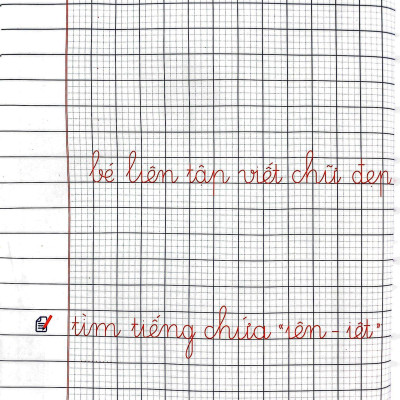 bé liên tân viết chữ đẹp
tìm tiếng chứa "iên - iêt"